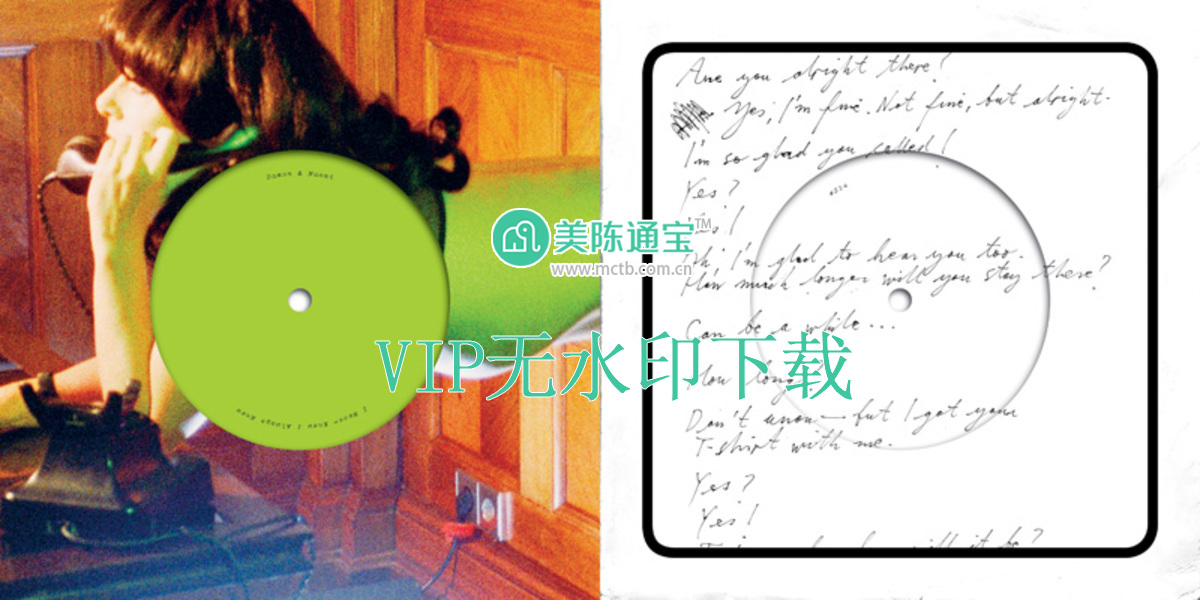 Damon & Naomi
I Never Knew I Always Knew
Are you alright there?
Yes, I'm fine. Not fine, but alright.
I'm so glad you called!
Yes?
Yes!
Ah, I'm glad to hear you too.
How much longer will you stay there?
Can be a while...
How long?
Don't know — but I got your
T-shirt with me.
Yes?
Yes!
will it be?
美陈通宝™
www.mctb.com.cn
VIP无水印下载